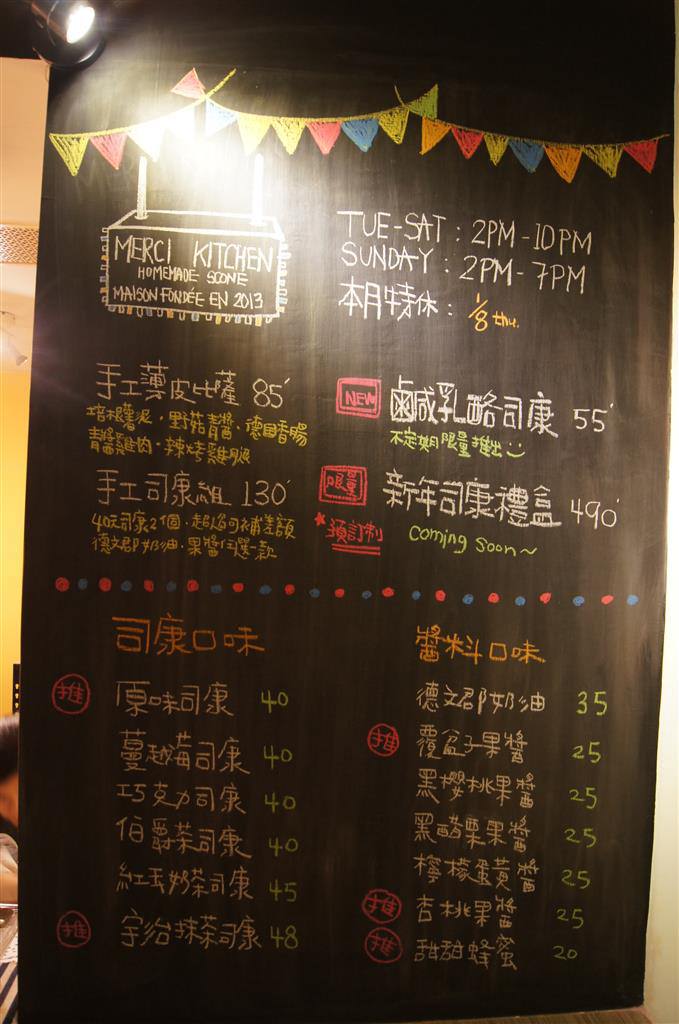 MERCI KITCHEN
HOMEMADE SCONE
MAISON FONDÉE EN 2013
TUE-SAT : 2PM-10PM
SUNDAY : 2PM-7PM
本月特休 : 1/8 thu.
手工薄皮比薩 85'
培根薯泥・野菇青醬・德國香腸
青醬雞肉・辣烤雞腿
手工司康組 130'
40元司康2個・超過可補差額
德文郡奶油・果醬任選一款
NEW 鹹乳酪司康 55'
不定期限量推出
限量 新年司康禮盒 490'
*預訂制 coming soon~
司康口味
推 原味司康 40
蔓越莓司康 40
巧克力司康 40
伯爵茶司康 40
紅玉奶茶司康 45
推 宇治抹茶司康 48
醬料口味
德文郡奶油 35
推 覆盆子果醬 25
黑櫻桃果醬 25
黑醋栗果醬 25
檸檬蛋黃醬 25
推 杏桃果醬 25
推 甜甜蜂蜜 20